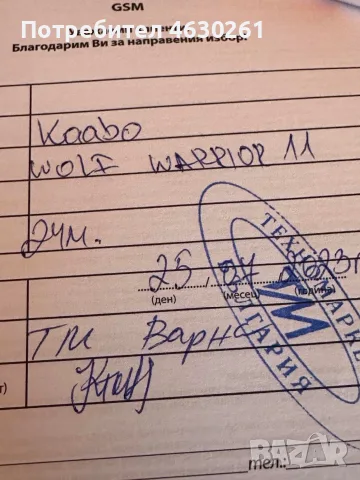 Потребител 4630261
GSM
Благодарим Ви за направения избор.
Kaabo
WOLF WARRIOR 11
24м.
25 07 2023г
(ден) (месец) (година)
ТЕХНОМАРКЕТ
БЪЛГАРИЯ
ТМ Варна
тел.:
BAZAR